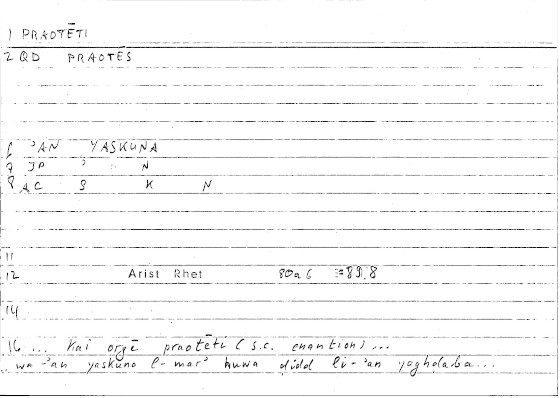 1 PRAOTĒTI
2 QD PRAOTĒS
6 ʾAN YASKUNA
7 JP ʾ N
8 AC S K N
11
12 Arist Rhet 80a6 =89,8
14
16 ... kai orgē praotēti (s.c. enantion) ...
... wa-ʾan yaskuna l-marʾ huwa ḍidd li-ʾan yaghḍaba...